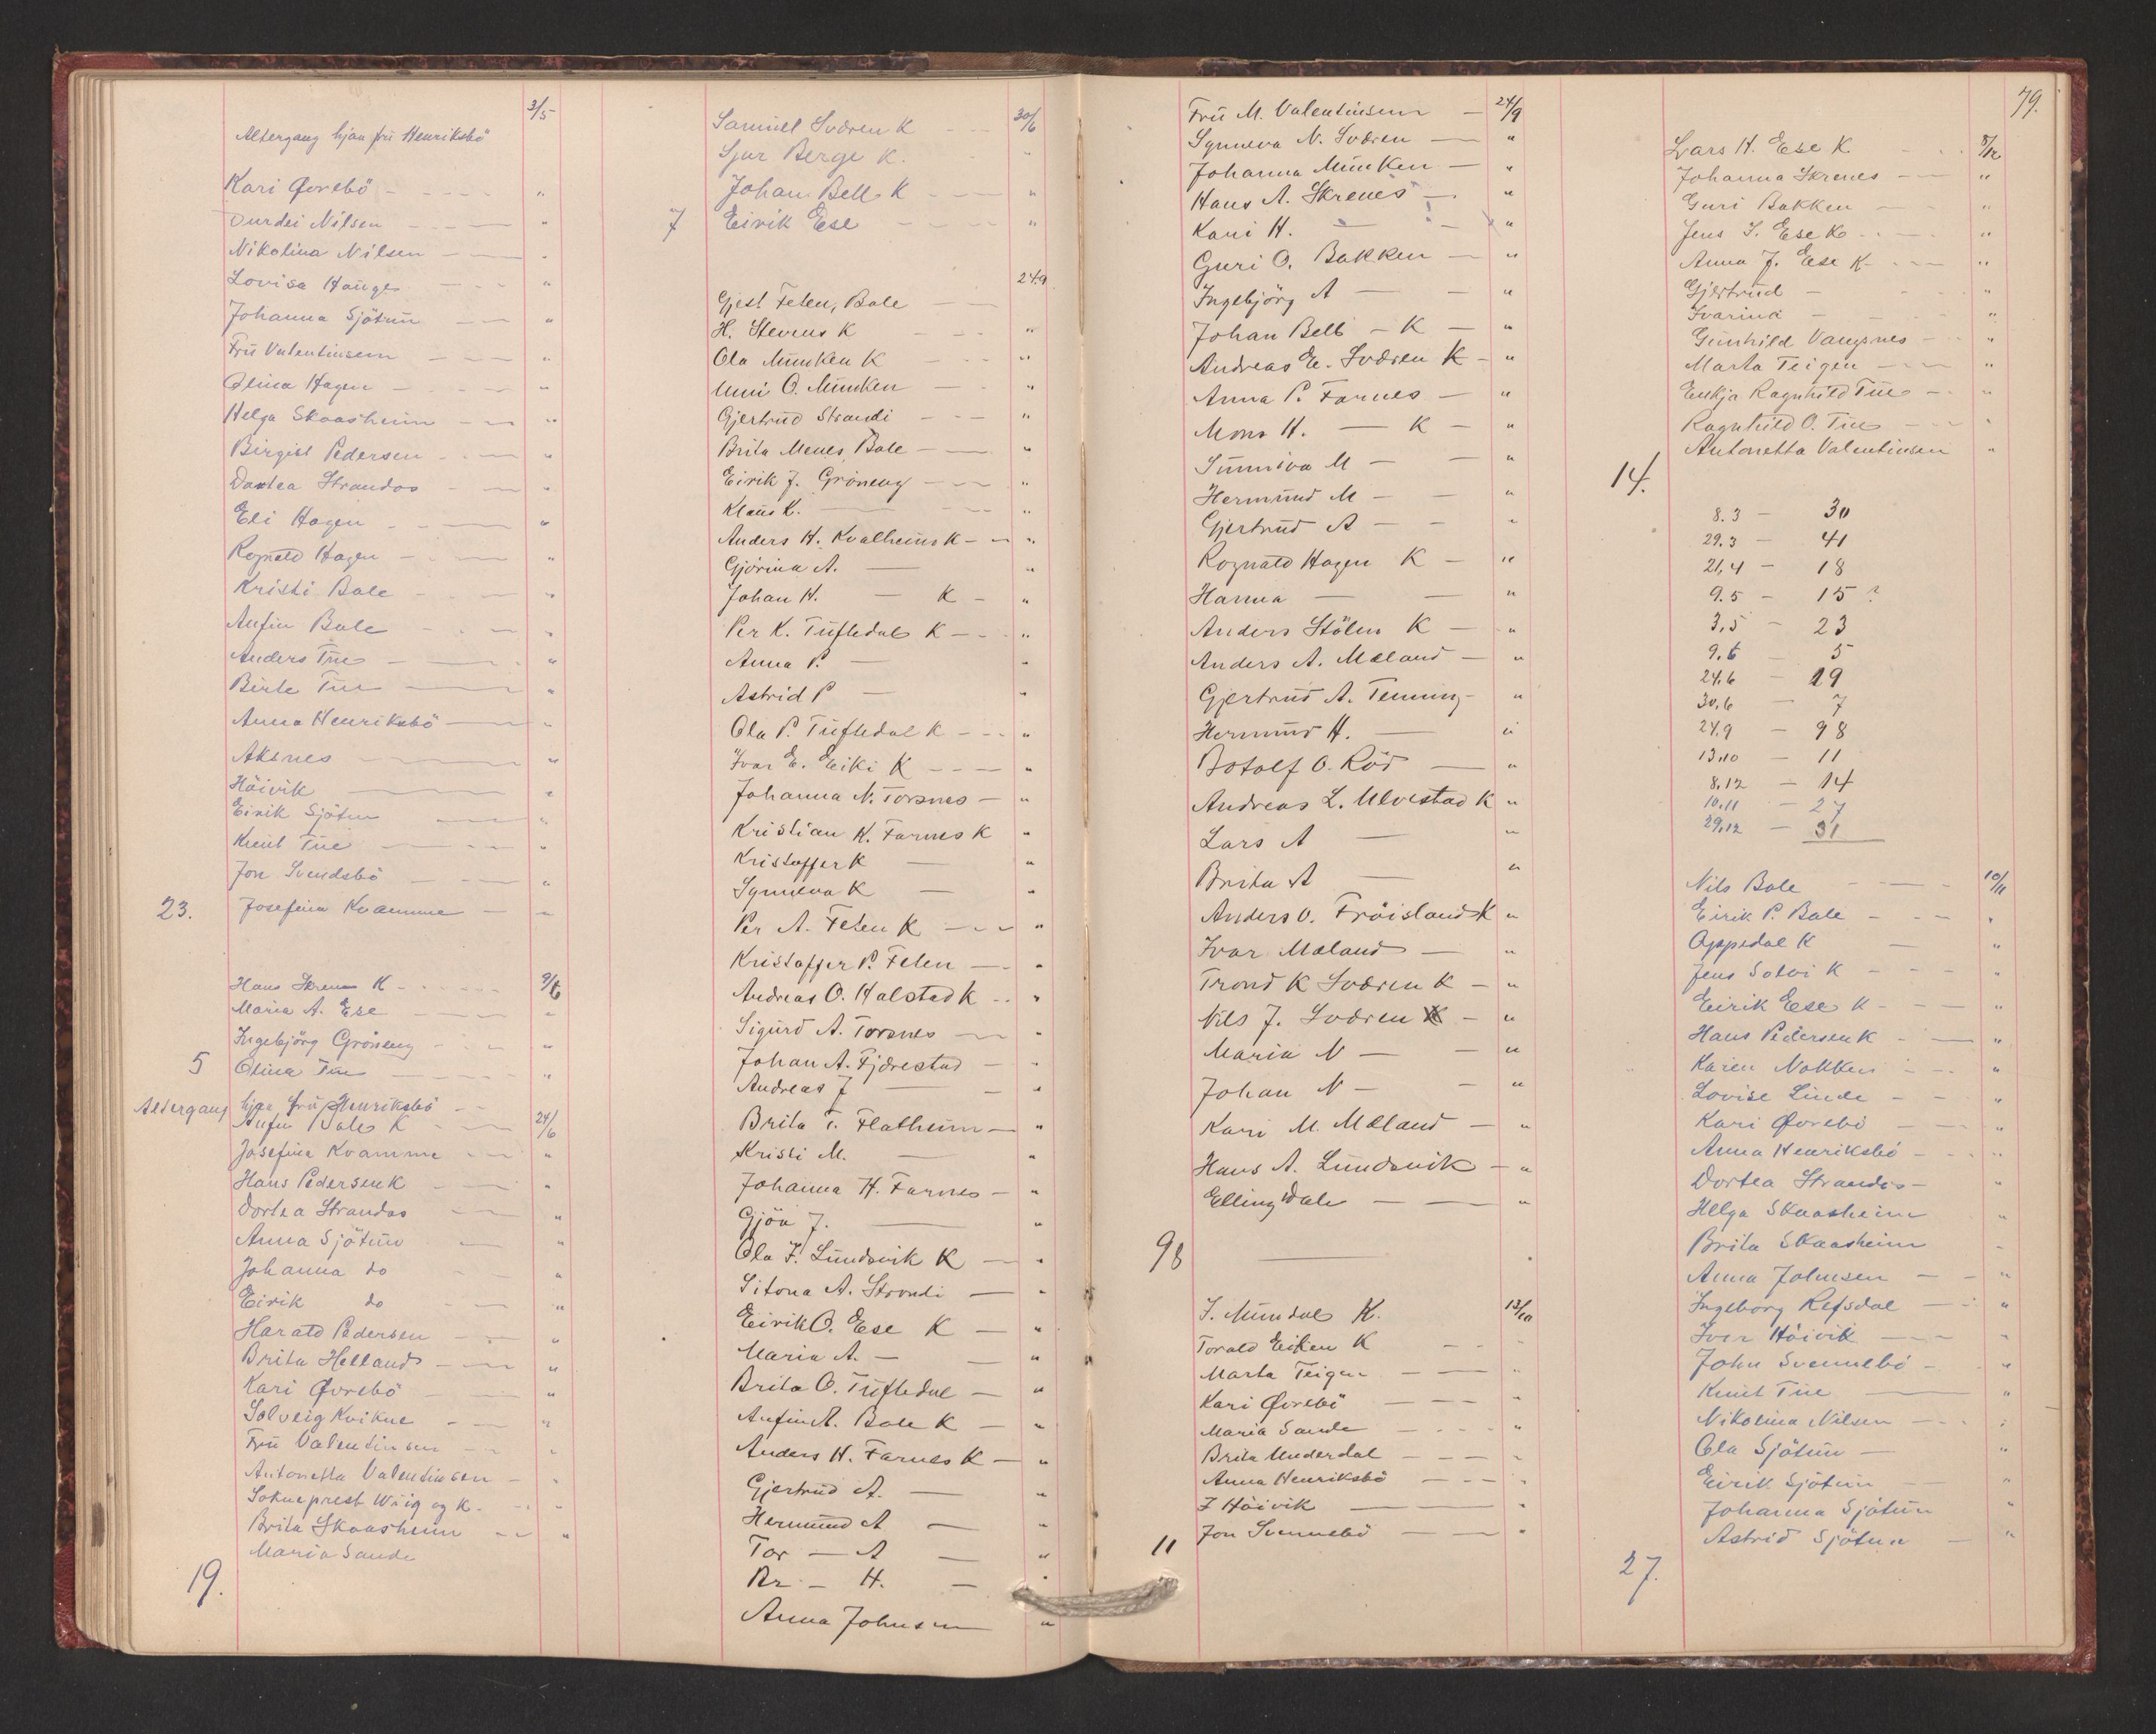 3/5
Altergang hjaa frü Henriksbö
Kari Øvrebö - - - - "
Durdei Nilsen - - - "
Nikolina Nilsen - - "
Lovisa Haüge - - - "
Johanna Sjötün - - "
Frü Valentinsen - - - "
Olina Hagen - - - "
Helga Skaasheim - - "
Birgit Pedersen - - "
Dortea Strandos - - "
Eli Hagen - - - "
Rognald Hagen - - - "
Kristi Bale - - - "
Anfin Bale - - - "
Anders Tüe - - - "
Birte Tüe - - "
Anna Henriksbö - - "
Aksnes - - "
Höivik - "
Eirik Sjötün - "
Knüt Tüe - - - "
Jon Svendsbö - - - "
23. Josefina Kvamme - "
Hans Skrenes K - - - - 9/6
Maria A. Ese - - - "
Ingebjörg Gröneng - - - "
5 Olina Tüe - - - "
Altergang hjaa frü Henriksbö - -
Anfin Bale K - - 24/6
Josefine Kvamme - - "
Hans Pedersen K - - "
Dortea Strandos - - "
Anna Sjötün - "
Johanna do - - "
Eirik do - - "
Harald Pedersen - - "
Brita Helland - - "
Kari Øvrebö - - "
Solveig Kvikne - - "
Frü Valentinsen - - "
Antonetta Valentinsen - "
Sokneprest Wiig og K. - "
Brita Skaasheim - - "
Maria Sande
19.
Samüel Sværen K - - - 30/6
Sjur Berge K. "
Johan Bell K - - - "
7 Eirik Ese - - - - "
24.9
Gjest Feten, Bale - -
H. Stevens K - - - "
Ola Münken K - - - "
Unni O. Münken - - "
Gjertrüd Strandi - - - "
Brita Menes, Bale - - "
Eirik J. Gröneng - - - "
Klaus K. - - - - "
Anders H. Kvalheim K - - "
Gjörina A. - "
Johan H. - K - "
Per K. Tüftedal K - - "
Anna P. - "
Astrid P - "
Ola P. Tüftedal K - - - "
Ivar E. Eiki K - - - "
Johanna N. Torsnes - "
Kristian K. Farnes K "
Kristoffer K - "
Synneva K - "
Per A. Feten K - - - "
Kristoffer P. Feten - - "
Andreas O. Halstad K - - "
Sigurd A. Torsnes - - "
Johan A. Fjærestad - "
Andreas J - - "
Brita T. Flatheim - "
Kristi M. - "
Johanna H. Farnes - "
Gjöa J. - "
Ola J. Lündsvik K - "
Sitona A. Strondi - "
Eirik O. Ese K - "
Maria A. - - "
Brita O. Tüftedal - "
Anfin A. Bale K - "
Anders H. Farnes K - "
Gjertrüd A. - "
Hermünd A - "
Tor - A - "
Br - H. - "
Anna Johnsen "
Frü M. Valentinsen - 24/9
Synneva N. Sværen - "
Johanna Münken - "
Hans A. Skrenes - "
Kari H. - - "
Guri O. Bakken - "
Ingebjörg A - - "
Johan Bell - K - "
Andreas E. Sværen K - "
Anna P. Farnes - "
Mons H. - K - "
Sünniva M - - "
Hermünd M - - "
Gjertrüd A - - "
Rognald Hagen K - "
Hanna - - "
Anders Stölen K - "
Anders A. Mæland - "
Gjertrüd A. Tenning - "
Hermünd H. - "
Botolf O. Röd - "
Andreas L. Ulvestad K "
Lars A - "
Brita A - "
Anders O. Fröisland K "
Ivar Mæland - "
Trond K Sværen K - "
Nils J. Sværen K - "
Maria N - - "
Johan N - - "
Kari M. Mæland - "
Hans A. Lündsvik - "
Elling Dale - - "
98 - "
J. Mündal K. 13/10
Torald Eiken K - - "
Marta Teigen - - "
Kari Øvrebö - - - "
Maria Sande - - - "
Brita Underdal - - - "
Anna Henriksbö - - - "
J Höivik - - "
11 Jon Svennebö - - "
79.
Lars H. Ese K - - 8/12
Johanna Skrenes - - "
Guri Bakken - - "
Jens J. Ese K - - "
Anna J. Ese K - - - "
Gjertrüd - - - "
Ivarina - - - "
Günhild Vangsnes - - "
Marta Teigen - - - "
Enkja Ragnhild Tüe - - "
Ragnhild O. Tüe - - - "
Antonetta Valentinsen "
14.
8.3 - 30
29.3 - 41
21,4 - 18
9.5 - 15 ?
3,5 - 23
9.6 - 5
24,6 - 19
30,6 - 7
24,9 - 98
13,10 - 11
8,12 - 14
10,11 - 27
29,12 - 31
Nils Bale - - - 10/11
Eirik P. Bale - - - "
Oppedal K - "
Jens Solvi K - - - "
Eirik Ese K - - - "
Hans Pedersen K - - "
Karen Nokken - - - "
Lovise Linde - - "
Kari Øvrebö - - - "
Anna Henriksbö - - - "
Dortea Strandos - "
Helga Skaasheim "
Brita Skaasheim -
Anna Johnsen - - "
Ingeborg Refsdal - - "
Iver Höivik - - - "
John Svennebö - - "
Knüt Tüe - "
Nikolina Nilsen - - - "
Ola Sjötün - "
Eirik Sjötün - "
Johanna Sjötün "
Astrid Sjötün - "
27.